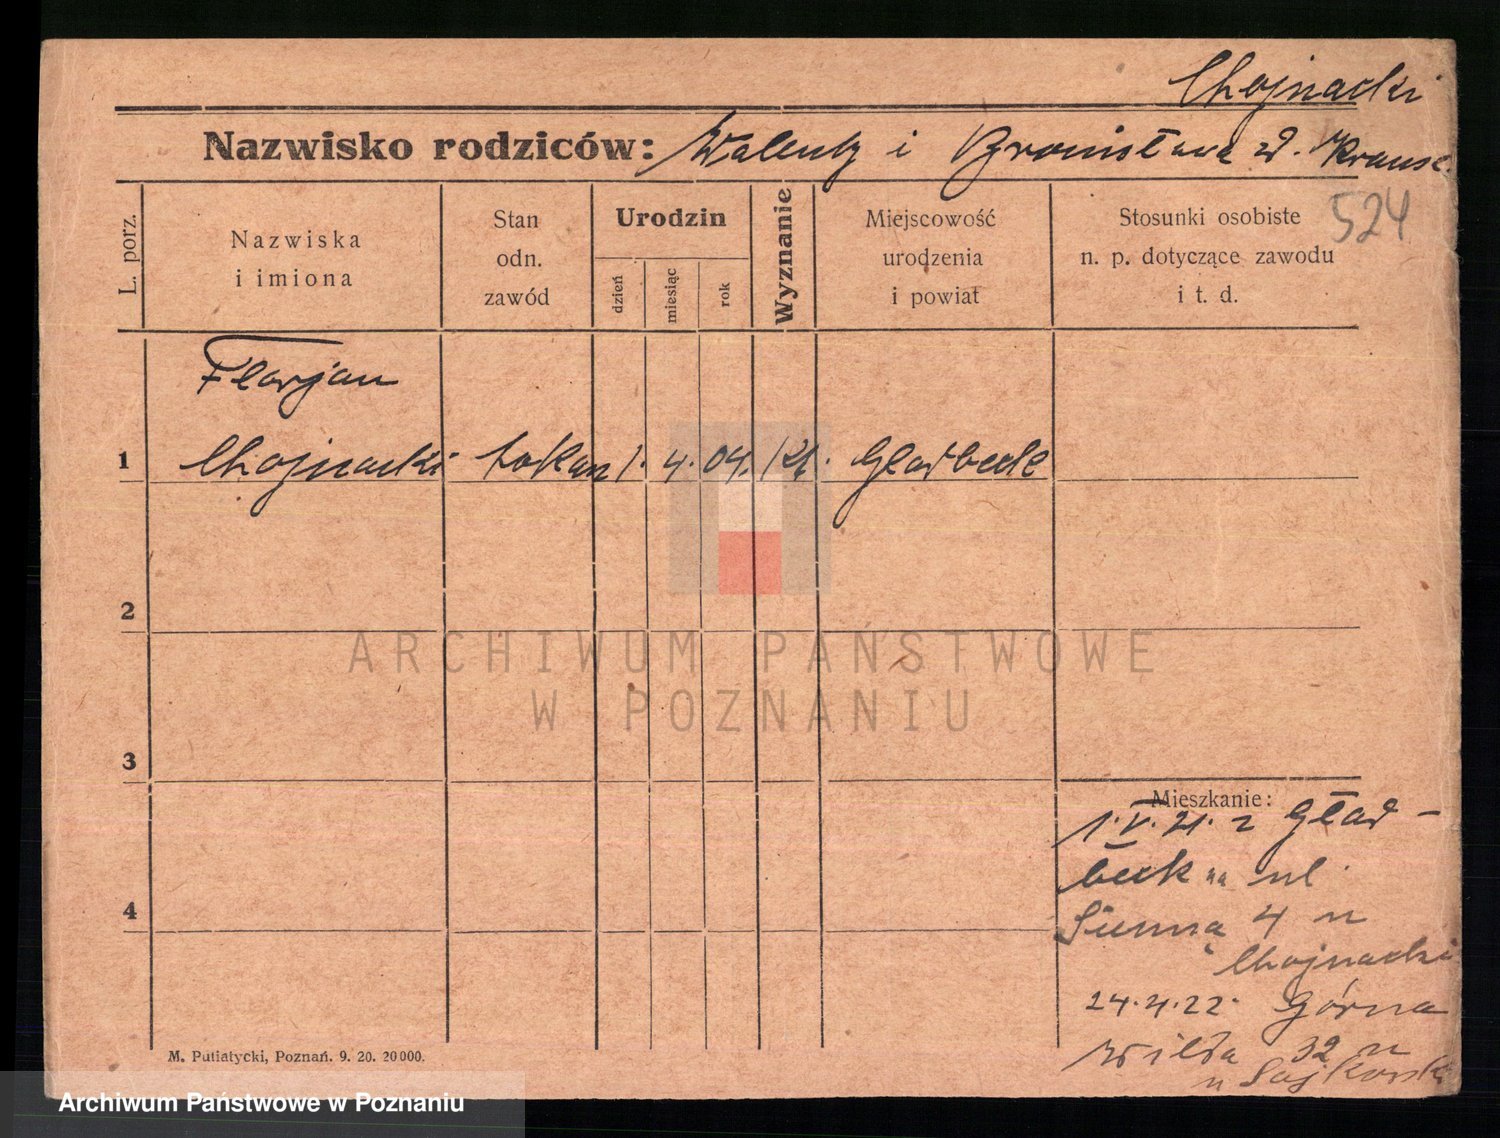 Chojnacki
Nazwisko rodziców: Walenty i Bronisława z d. Krause
524
L. porz.
Nazwiska
i imiona
Stan
odn.
zawód
Urodzin
dzień
miesiąc
rok
Wyznanie
Miejscowość
urodzenia
i powiat
Stosunki osobiste
n. p. dotyczące zawodu
i t. d.
Florjan
1 Chojnacki tokarz 1. 4. 04. Gladbeck
2
3
4
ARCHIWUM PAŃSTWOWE
W POZNANIU
Mieszkanie:
1.V.21. z Glad-
beck na ul.
Sienną 4 u
Chojnacki
24.4.22. Górna
Wilda 32
M. Putiatycki, Poznań. 9. 20. 20000.
Archiwum Państwowe w Poznaniu